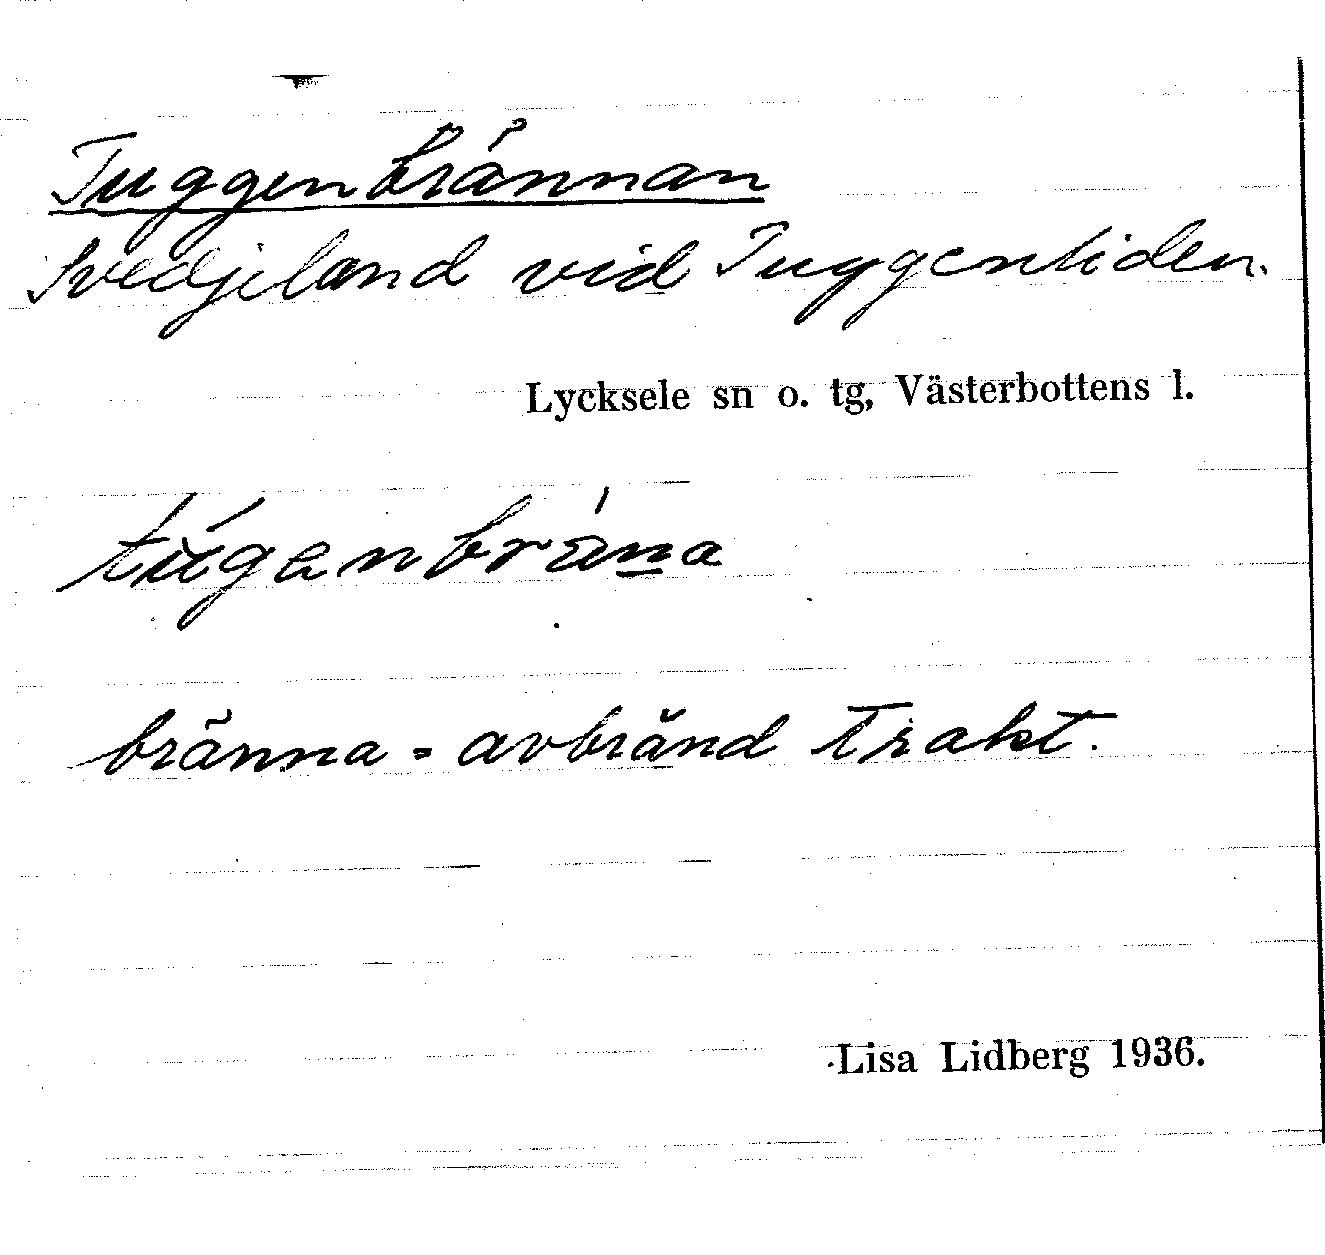 Tuggenbrännan
Svedjeland vid Tuggenliden.
Lycksele sn o. tg, Västerbottens l.
túgenbrána
bränna = avbränd trakt.
Lisa Lidberg 1936.